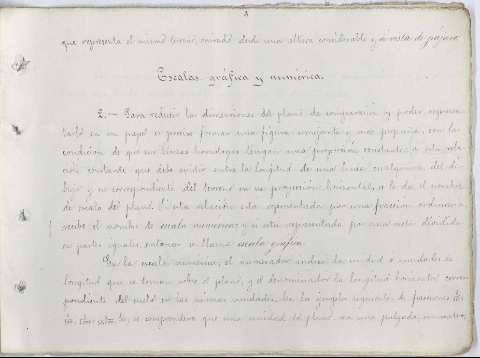 4
que representa el mismo terreno, mirado desde una altura considerable y á vista de pájaro.
Escalas gráfica y numérica.
2.— Para reducir las dimensiones del plano de comparación y poder represen-
tarlo en un papel es preciso formar una figura semejante y más pequeña, con la
condición de que sus líneas homólogas tengan una proporción constante; á esta rela-
ción constante que debe existir entre la longitud de una línea cualquiera del di-
bujo y su correspondiente del terreno en su proyección horizontal, se le da el nombre
de escala del plano. Si esta relación está representada por una fracción ordinaria
recibe el nombre de escala numérica; y si está representada por una recta dividida
en partes iguales, entonces se llama escala gráfica.
En la escala numérica, el numerador indica la unidad ó unidades de
longitud que se toman sobre el plano, y el denominador la longitud horizontal corres-
pondiente del suelo en las mismas unidades. En los ejemplos siguientes de fracciones
se comprenderá que una unidad del plano, sea una pulgada, un metro,